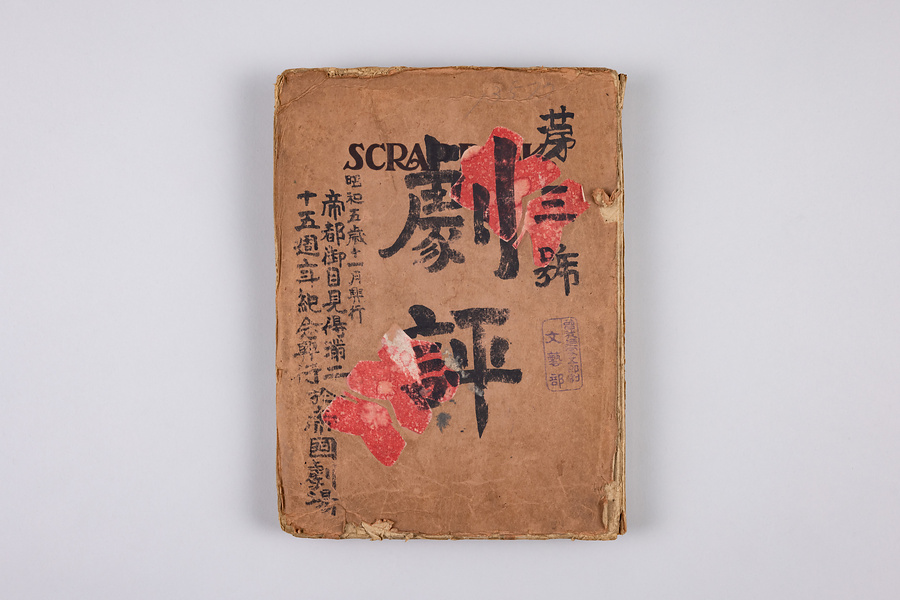 SCRAP BOOK
第三號
劇評
昭和五歳十一月興行
帝都御目見得満二
十五週年紀念興行 於帝國劇場
文藝部